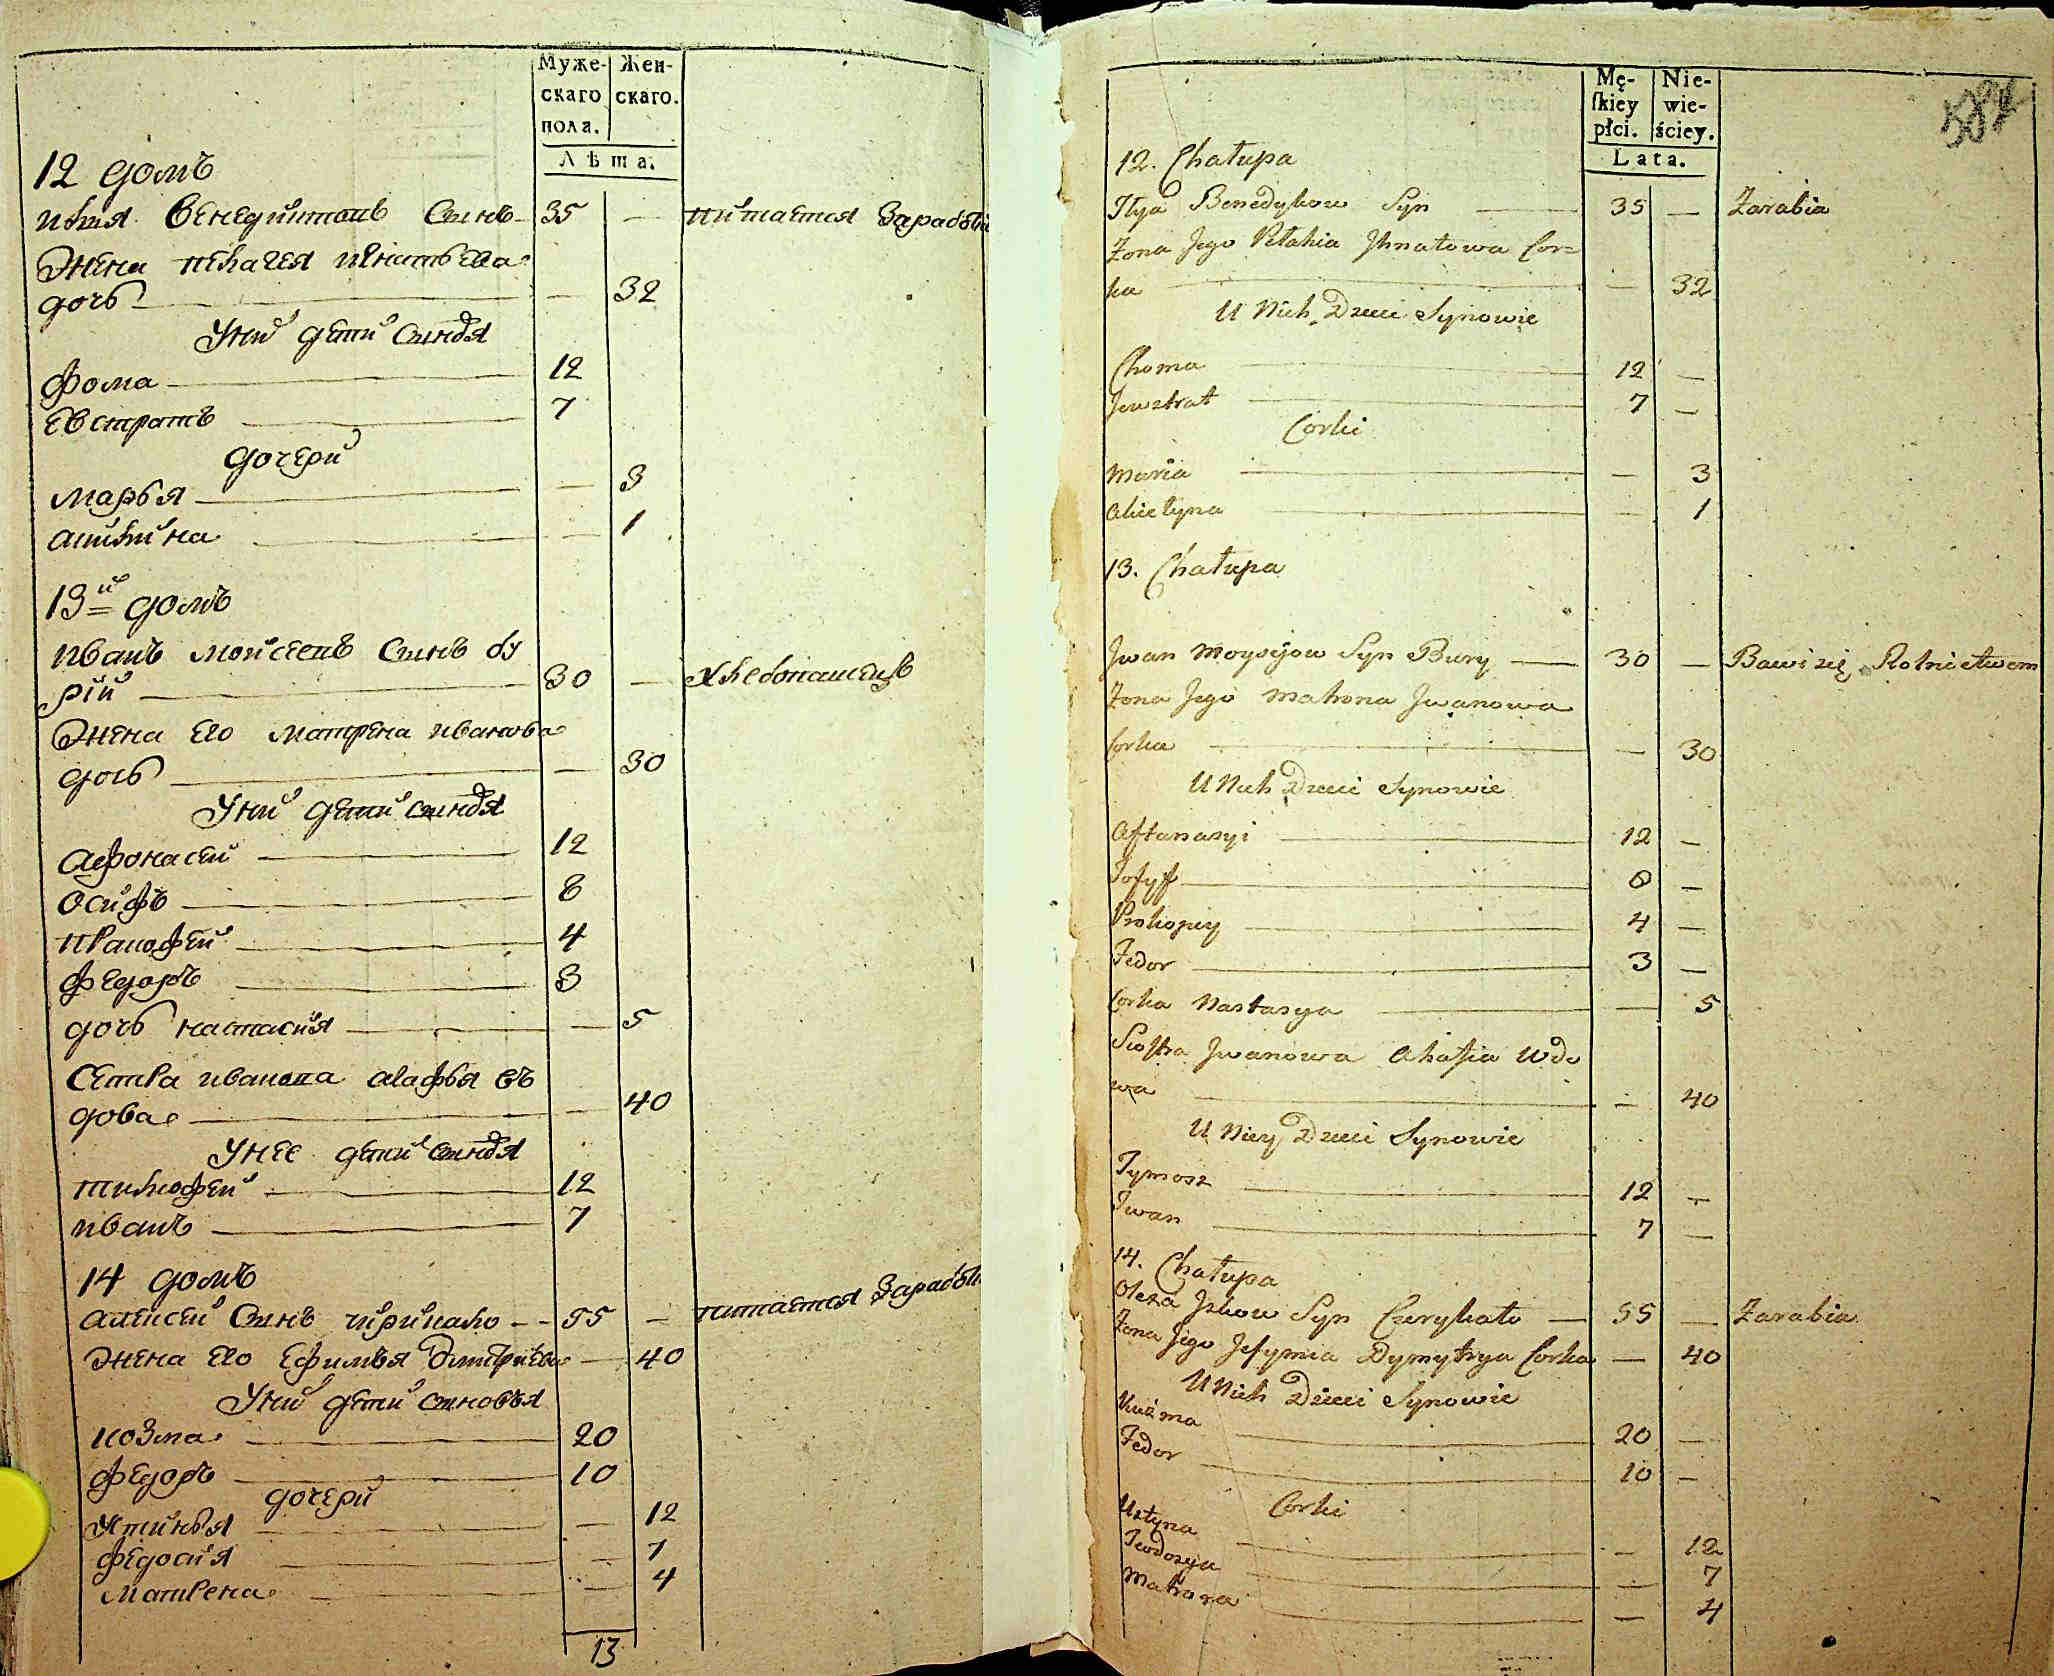 Муже- Жен-
скаго скаго.
пола.
Лѣта.
12 домъ
Илья Венедиктовъ Сынъ 35 — питается Заработк
Жена пелагея игнатьева
дочь — 32
У ни дети сыновя
фома 12
Евстратъ 7
дочери
марья — 3
акилина — 1
13й домъ
иванъ моисеевъ Сынъ бу
рій 30 — хлебопашецъ
Жена Его матрена иванова
дочь — 30
У ни дети сыновя
афонасеи 12
Осифъ 8
пракофеи 4
Федоръ 3
дочь настасия — 5
Сетра иванова агафья въ
дова — 40
У нее дети сыновя
тимофеи 12
иванъ 7
14 домъ
алексеи Сынъ чирикало 55 — питается Заработк
Жена Его Ефимья Дмитриева — 40
У ни дети сыновья
козма 20
федоръ 10
дочери
Устинья — 12
федосия — 7
Матрена — 4
13
Mę- Nie-
ſkiey wie-
płci. ściey.
Lata.
12. Chałupa
Ilya Benedykow Syn 35 — Zarabia
Zona Jego Pelahia Jhnatowa Cor=
ka — 32
U Nich Dzieci Synowie
Choma 12 —
Jewstrat 7 —
Corki
Maria — 3
Akielyna — 1
13. Chałupa
Jwan Moysejow Syn Bury 30 — Bawi się Rolnictwem
Zona Jego Matrona Jwanowa
Corka — 30
U Nich Dzieci Synowie
Aftanasyi 12 —
Jozyf 8 —
Prokopiy 4 —
Fedor 3 —
Corka Nastasya — 5
Siostra Jwanowa Ahafia Wdo
wa — 40
U Niey Dzieci Synowie
Tymosz 12 —
Jwan 7 —
14. Chałupa
Olexa Jzkow Syn Czerykało 55 — Zarabia
Zona Jego Jefymia Dymytrya Corka — 40
U Nich Dzieci Synowie
Kuźma 20 —
Fedor 10 —
Corki
Ustyna — 12
Teodozya — 7
Matrona — 4